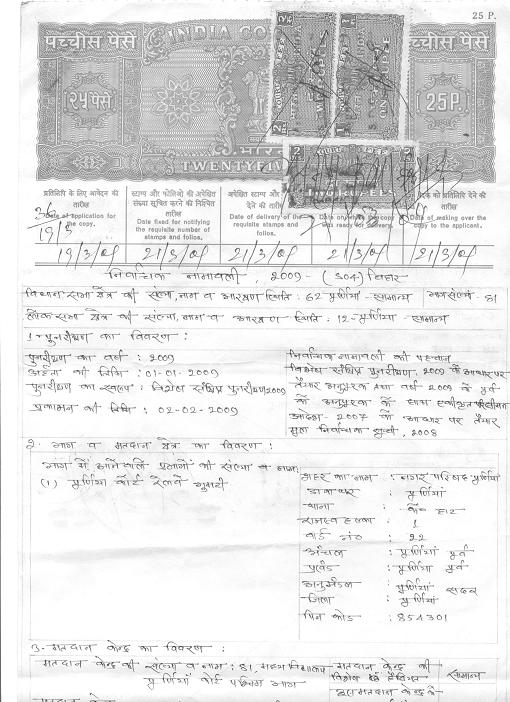 25 P.
पच्चीस पैसे
INDIA CO
पच्चीस पैसे
२५ पैसे
25P.
भारत
TWENTYFIVE
प्रतिलिपि के लिए आवेदन की तारीख
Date of application for the copy.
स्टाम्प और फोलिओ की अपेक्षित संख्या सूचित करने की निश्चित तारीख
Date fixed for notifying the requisite number of stamps and folios.
अपेक्षित स्टाम्प और देने की तारीख
Date of delivery of the requisite stamps and folios.
was ready for delivery.
को प्रतिलिपि देने की तारीख
Date of making over the copy to the applicant.
19/3/09 21/3/09 21/3/09 21/3/09 21/3/09
निर्वाचक नामावली, 2009 - (S04) बिहार
विधान सभा क्षेत्र की संख्या, नाम व आरक्षण स्थिति : 62 पूर्णियाँ - सामान्य भाग संख्या - 81
लोक सभा क्षेत्र की संख्या, नाम व आरक्षण स्थिति : 12 - पूर्णियाँ - सामान्य
1 - पुनरीक्षण का विवरण :
पुनरीक्षण का वर्ष : 2009
अर्हता की तिथि : 01-01-2009
पुनरीक्षण का स्वरूप : विशेष संक्षिप्त पुनरीक्षण 2009
प्रकाशन की तिथि : 02-02-2009
निर्वाचक नामावली की पहचान
विशेष संक्षिप्त पुनरीक्षण, 2009 के आधार पर
तैयार अनुपूरक तथा वर्ष 2009 के पूर्व
के अनुपूरक के साथ एकीकृत परिसीमन
आदेश - 2007 के आधार पर तैयार
मूल निर्वाचक सूची, 2008
2. भाग व मतदान क्षेत्र का विवरण :
भाग में आनेवाली प्रभागों की संख्या व नाम :
(1) पूर्णियाँ कोर्ट रेलवे गुमटी
शहर का नाम : नगर परिषद पूर्णियाँ
डाकघर : पूर्णियाँ
थाना : के० हाट
राजस्व हलका : 1
वार्ड नं० : 22
अंचल : पूर्णियाँ पूर्व
प्रखंड : पूर्णियाँ पूर्व
अनुमंडल : पूर्णियाँ सदर
जिला : पूर्णियाँ
पिन कोड : 854301
3 - मतदान केन्द्र का विवरण :
मतदान केन्द्र की संख्या व नाम : 81, मध्य विद्यालय
पूर्णियाँ कोर्ट पश्चिम भाग
मतदान केन्द्र की
सामान्य
मतदान केन्द्र के